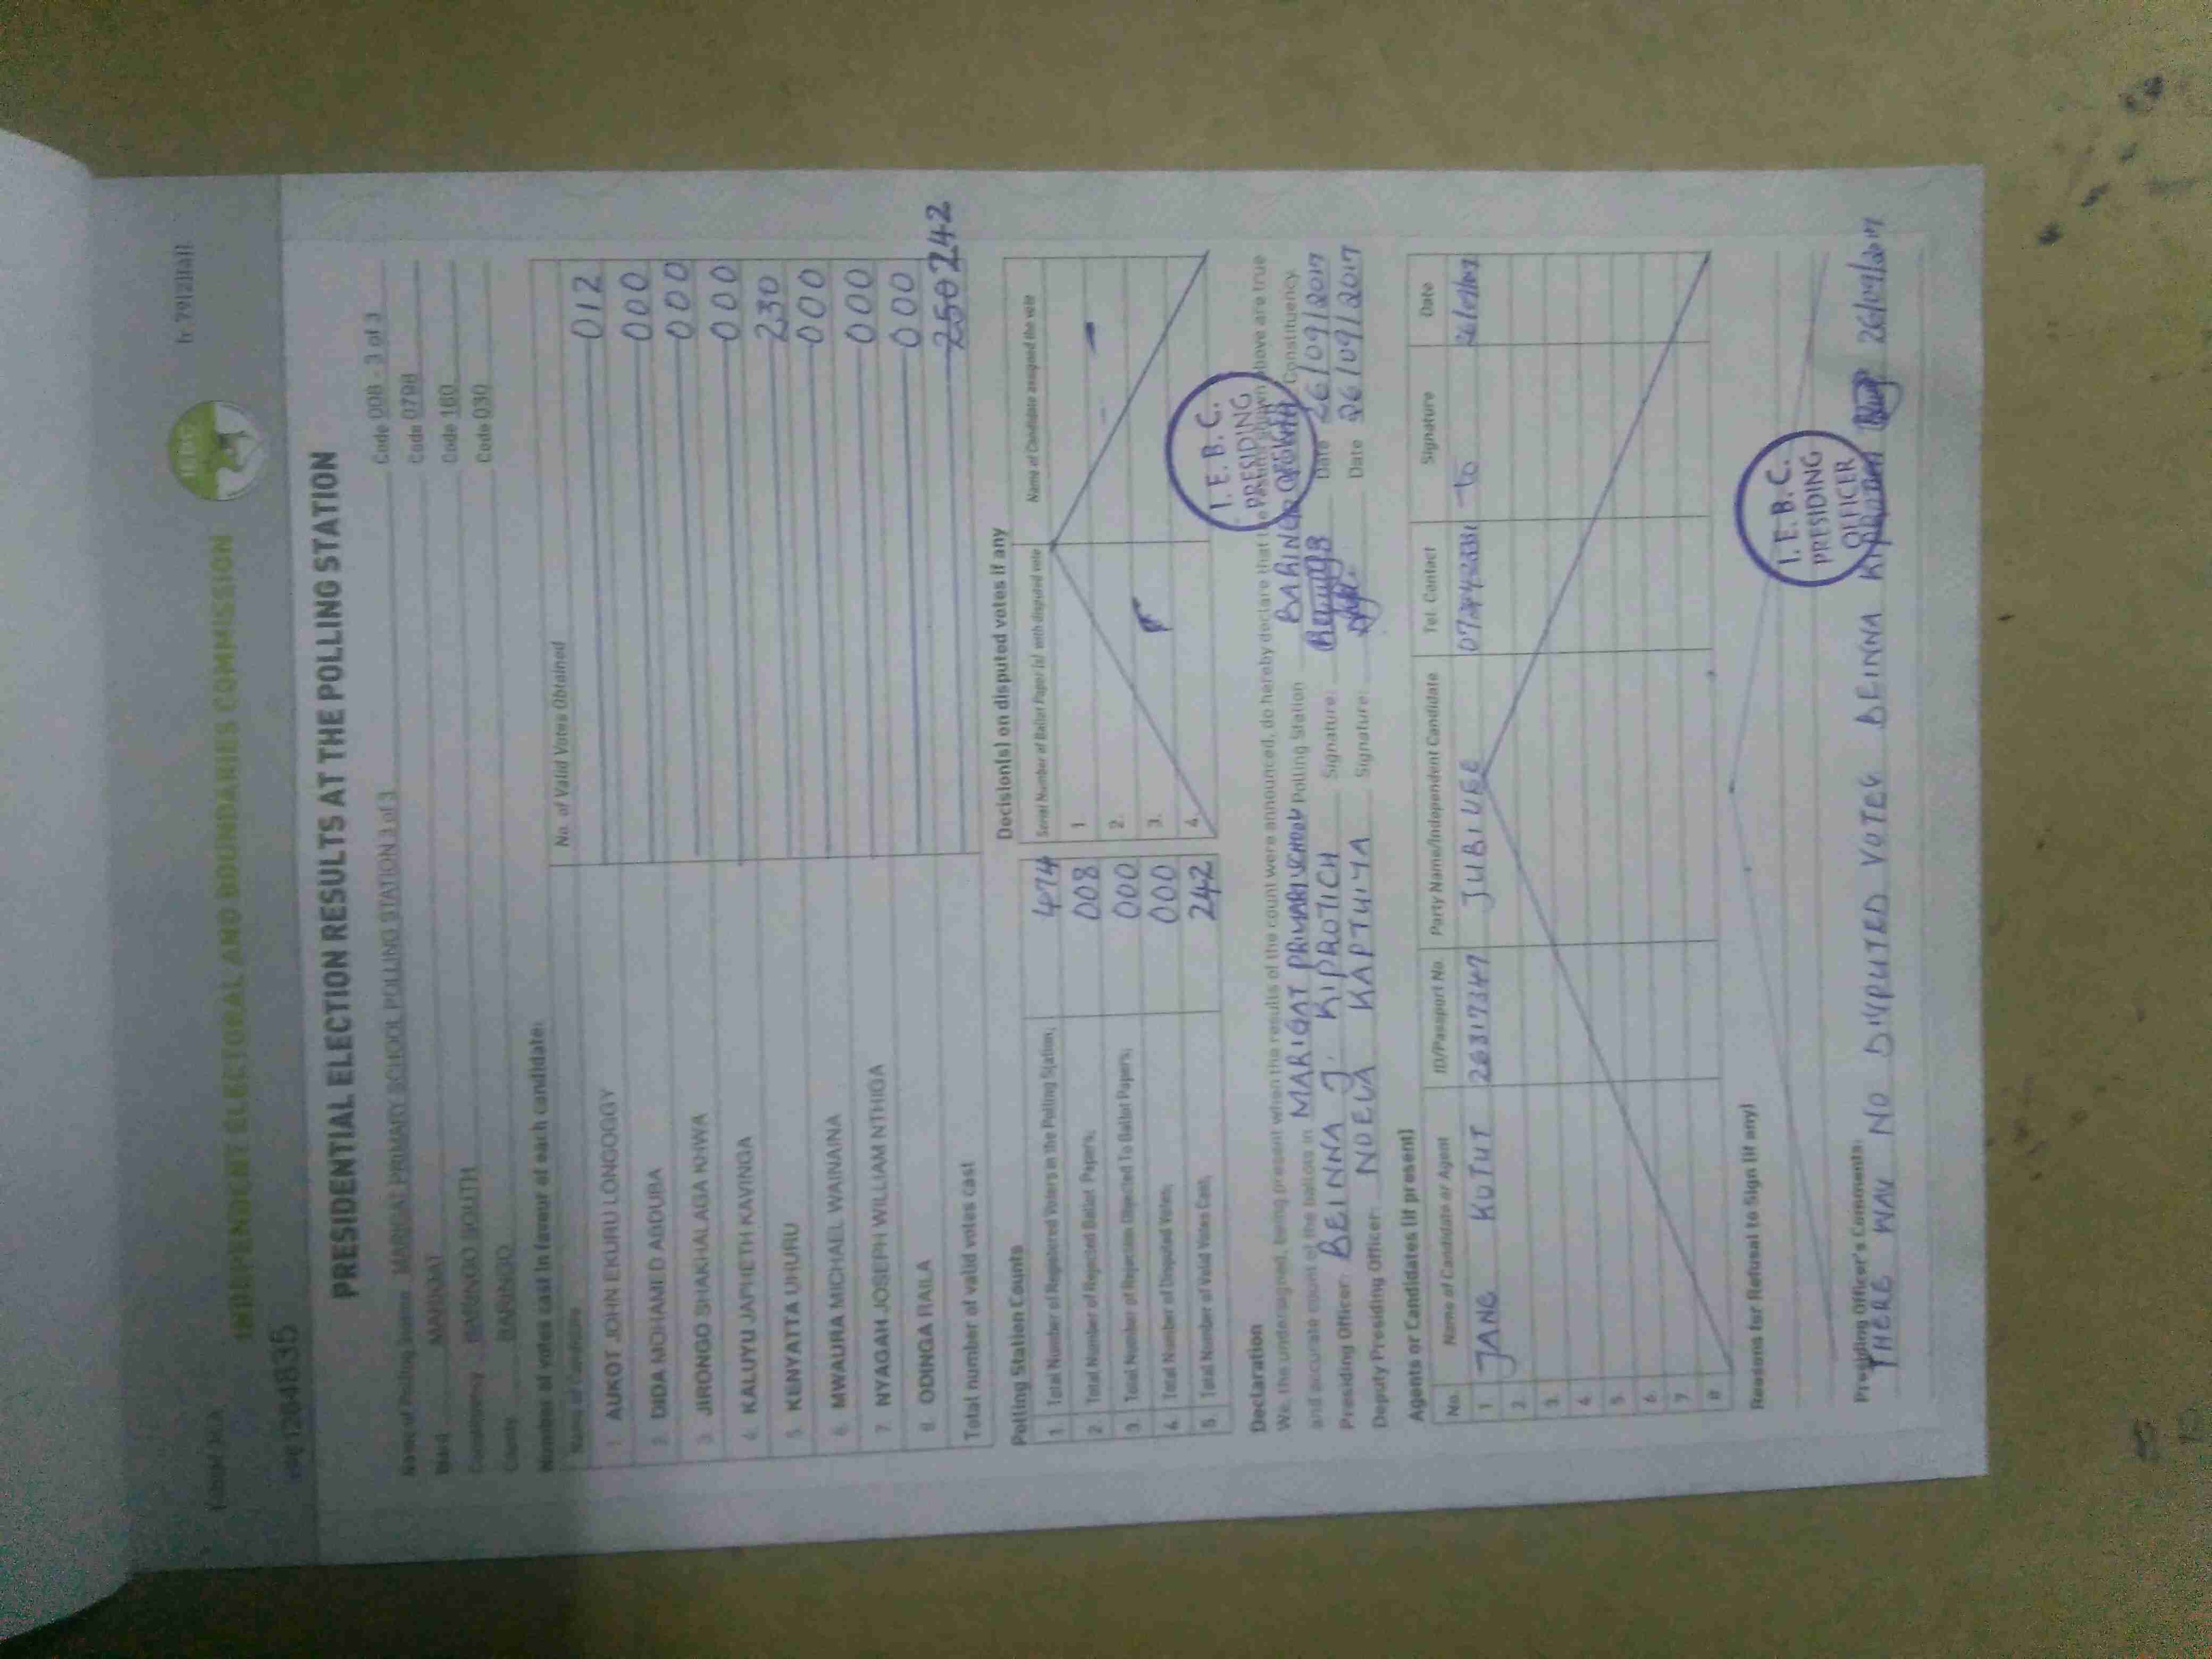 FORM 34A
h 79(2)(a)
IEBC
INDEPENDENT ELECTORAL AND BOUNDARIES COMMISSION
PRESIDENTIAL ELECTION RESULTS AT THE POLLING STATION
Name of Polling Station MARIGAT PRIMARY SCHOOL POLLING STATION 3 of 3 Code 008 - 3 of 3
Ward MARIGAT Code 0798
Constituency BARINGO SOUTH Code 160
County BARINGO Code 030
Number of votes cast in favour of each candidate:
Name of Candidate No. of Valid Votes Obtained
1. AUKOT JOHN EKURU LONGOGGY 012
2. DIDA MOHAMED ABDUBA 000
3. JIRONGO SHAKHALAGA KHWA 000
4. KALUYU JAPHETH KAVINGA 000
5. KENYATTA UHURU 230
6. MWAURA MICHAEL WAINAINA 000
7. NYAGAH JOSEPH WILLIAM NTHIGA 000
8. ODINGA RAILA 000
Total number of valid votes cast 250 242
Polling Station Counts
1. Total Number of Registered Voters in the Polling Station; 474
2. Total Number of Rejected Ballot Papers; 008
3. Total Number of Rejection Objected To Ballot Papers; 000
4. Total Number of Disputed Votes; 000
5. Total Number of Valid Votes Cast; 242
Decision(s) on disputed votes if any
Serial Number of Ballot Paper (s) with disputed vote Name of Candidate assigned the vote
1
2.
3.
4.
Declaration
We, the undersigned, being present when the results of the count were announced, do hereby declare that the results shown above are true
and accurate count of the ballots in MARIGAT PRIMARI SCHOOL Polling Station BARINGO SOUTH Constituency.
Presiding Officer: BEINNA J. KIPROTICH Signature: Date 26/09/2017
Deputy Presiding Officer: NOELA KAPTUIYA Signature: Date 26/09/2017
I.E.B.C.
PRESIDING
OFFICER
Agents or Candidates (if present)
No. Name of Candidate or Agent ID/Passport No. Party Name/Independent Candidate Tel. Contact Signature Date
1 JANE KUTUT 26317347 JUBILEE
2.
3.
4.
5.
6.
7.
8
Reasons for Refusal to Sign (if any)
I.E.B.C.
PRESIDING
OFFICER
Presiding Officer's Comments:
THERE WAS NO DISPUTED VOTES BEINNA KIPROTICH 26/09/2017